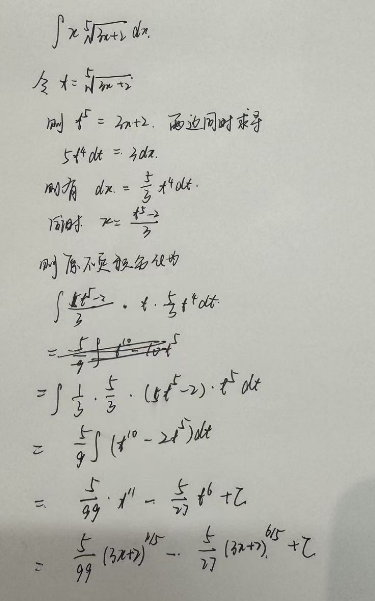 ∫ x ⁵√(3x+2) dx.
令 t = ⁵√(3x+2)
则 t⁵ = 3x+2. 两边同时求导
5t⁴dt = 3dx.
则有 dx = 5/3 t⁴dt.
同时 x = (t⁵-2)/3
则原不定积分化为
∫ (t⁵-2)/3 · t · 5/3 t⁴dt.
= ∫ 1/3 · 5/3 · (t⁵-2) · t⁵ dt
= 5/9 ∫ (t¹⁰ - 2t⁵)dt
= 5/99 · t¹¹ - 5/27 t⁶ + C
= 5/99 (3x+2)^(11/5) - 5/27 (3x+2)^(6/5) + C